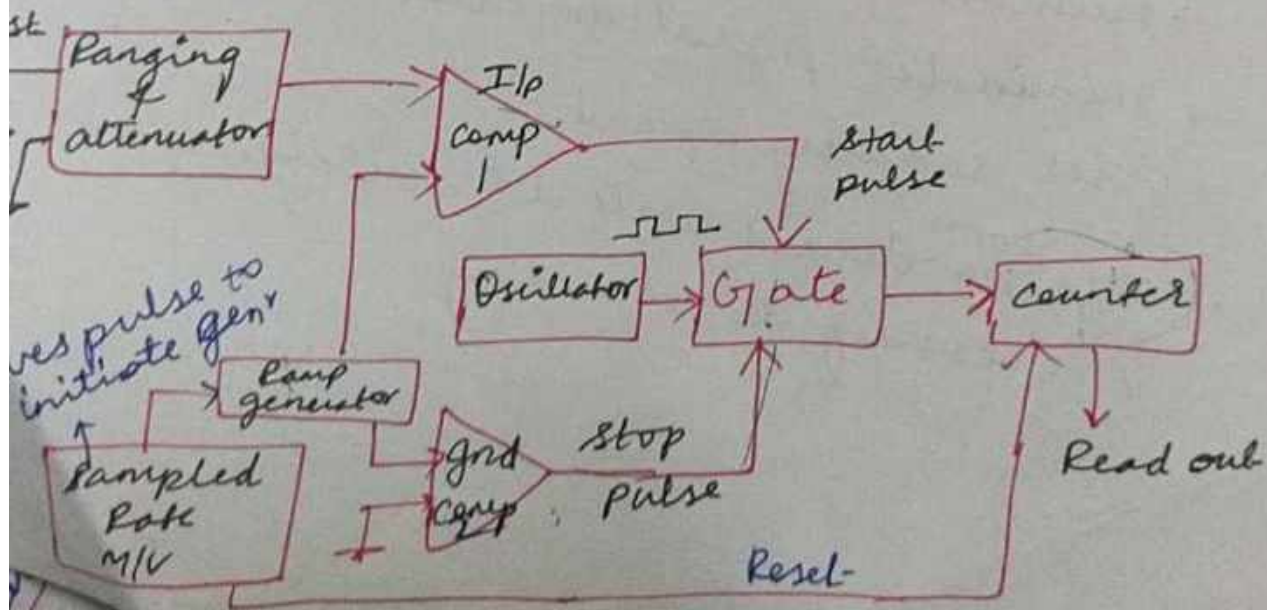 st
Ranging
&
attenuator
I/p
comp
1
Start
pulse
Oscillator
Gate
Counter
ves pulse to
initiate gen r
Ramp
generator
Sampled
Rate
M/V
gnd
comp
2
Stop
Pulse
Read out
Reset